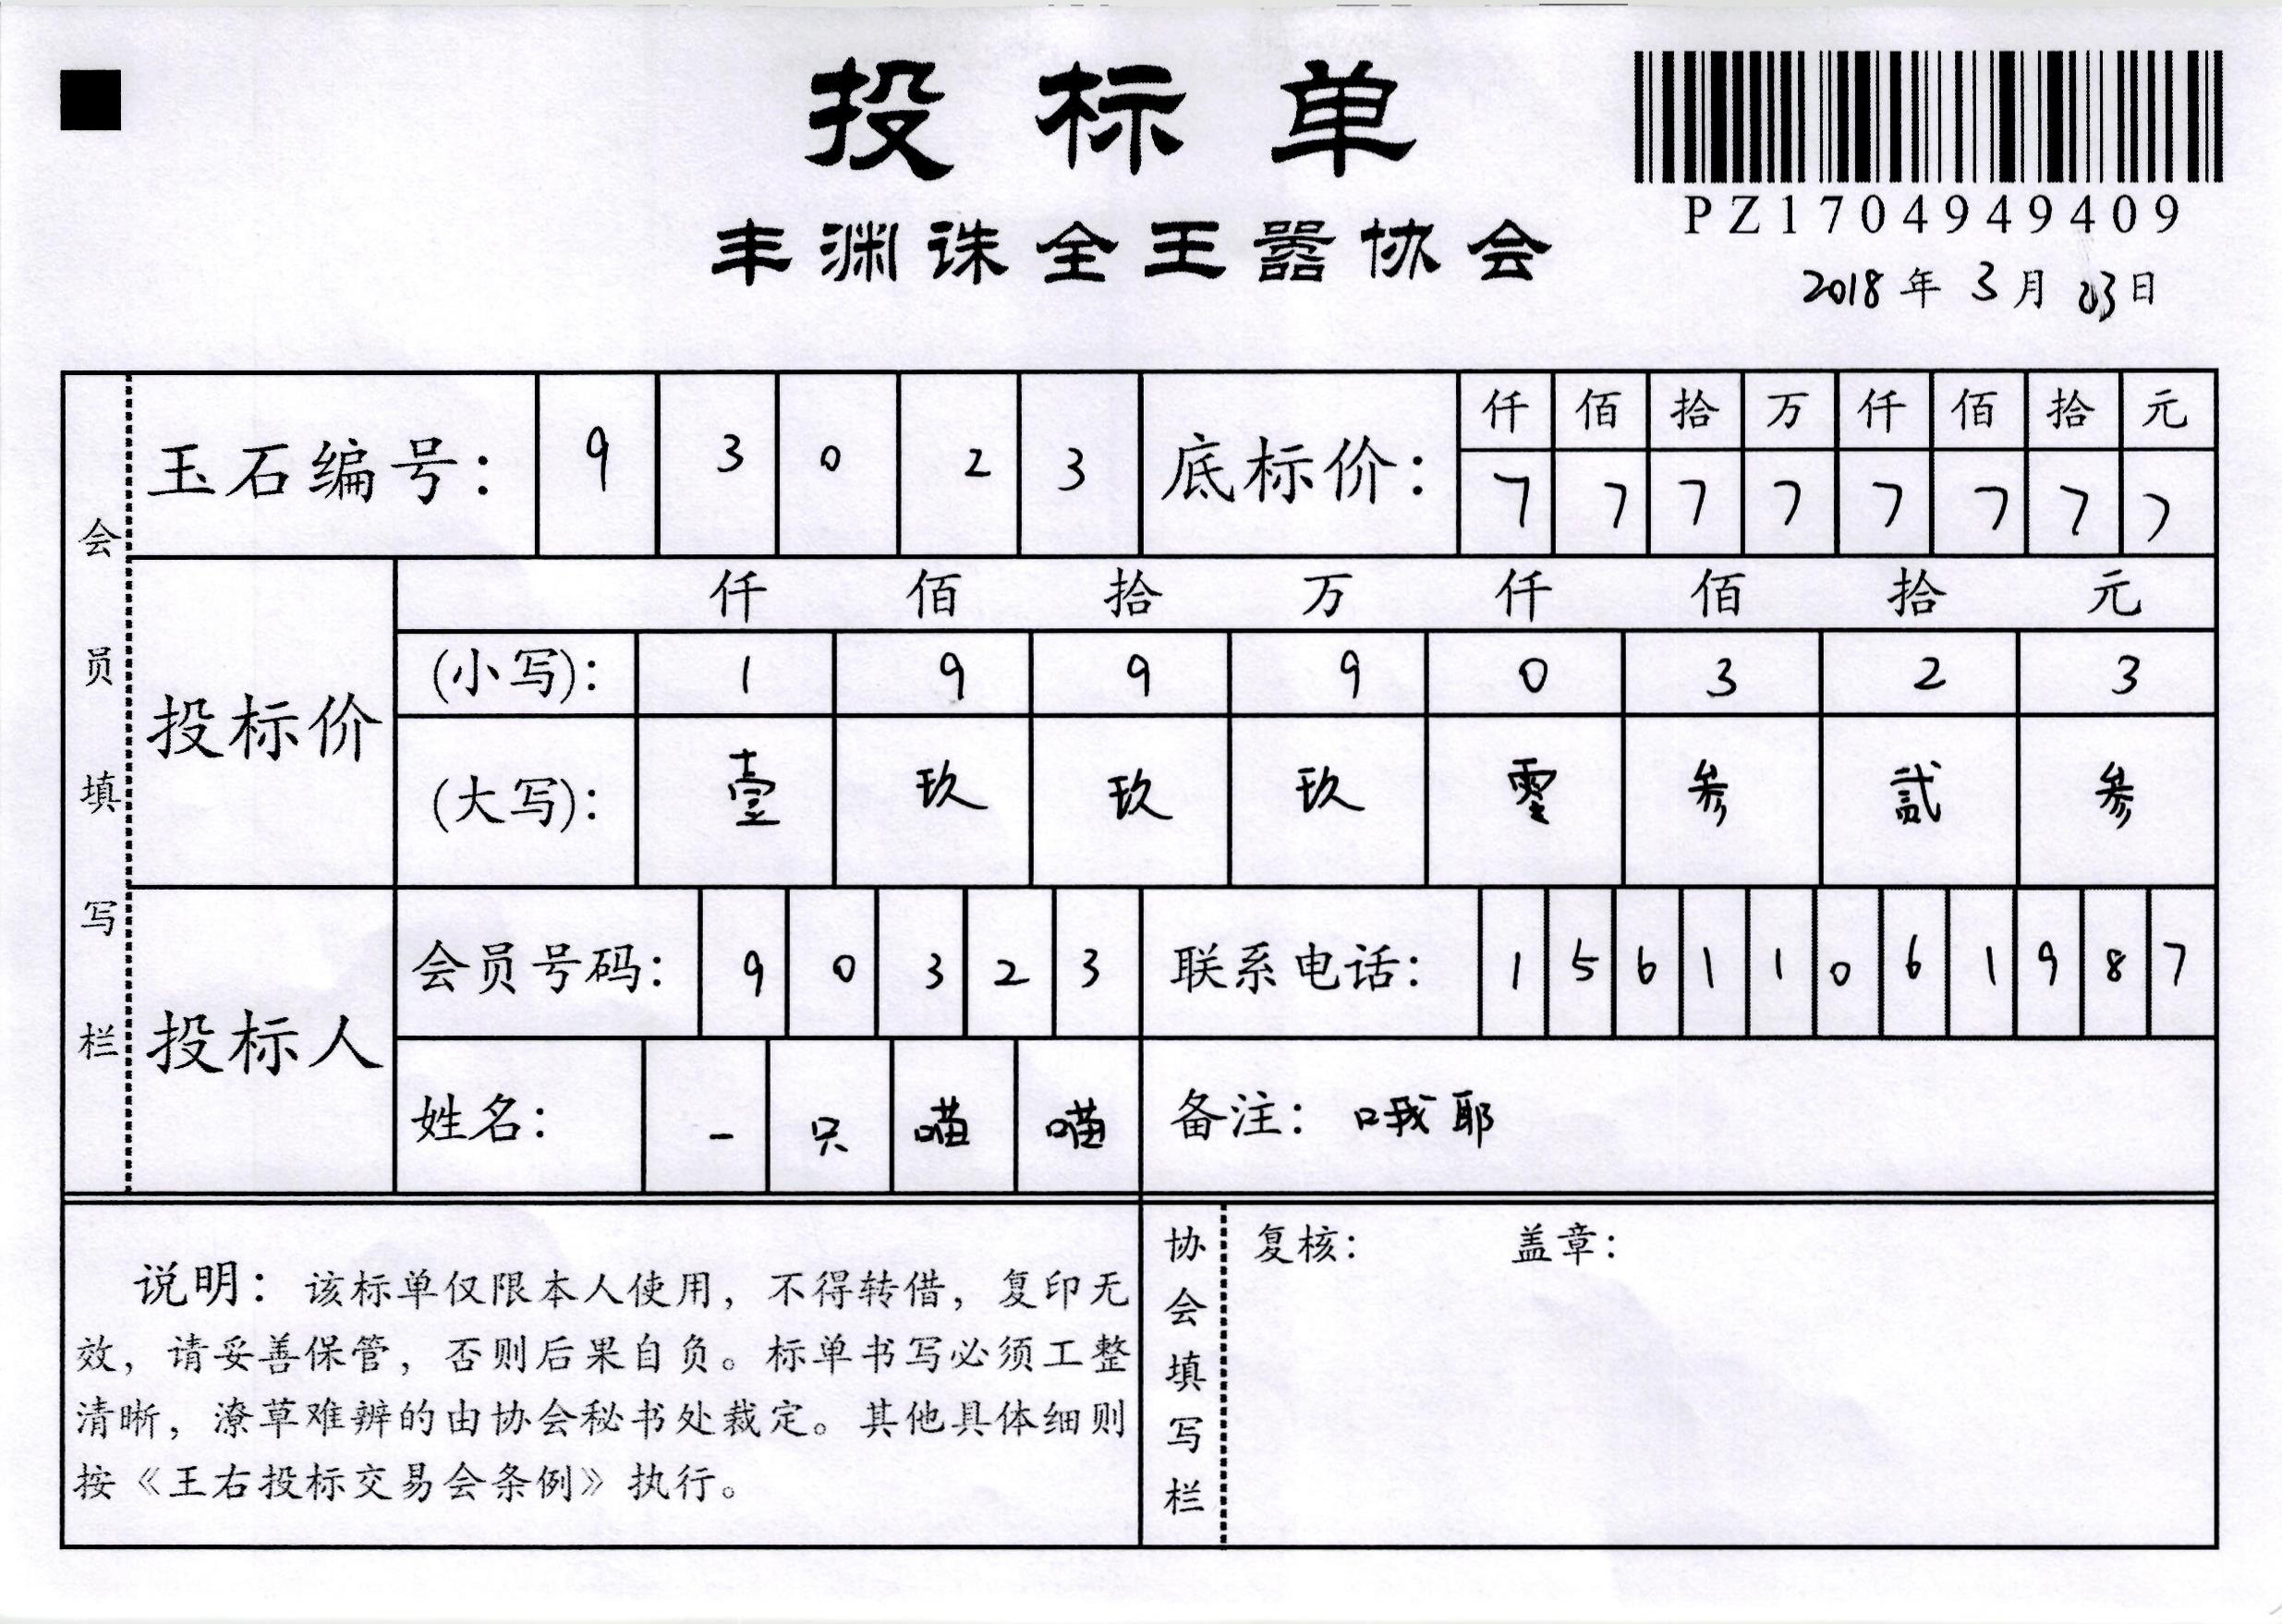 投标单
PZ1704949409
丰渊诛全王嚣协会
2018年3月03日
会员填写栏
玉石编号：93023
底标价：
仟佰拾万仟佰拾元
77777777
投标价
仟佰拾万仟佰拾元
(小写)：19990323
(大写)：壹玖玖玖零参贰参
投标人
会员号码：90323
联系电话：15611061987
姓名：一只喵喵
备注：哦耶
说明：该标单仅限本人使用，不得转借，复印无
效，请妥善保管，否则后果自负。标单书写必须工整
清晰，潦草难辨的由协会秘书处裁定。其他具体细则
按《王右投标交易会条例》执行。
协会填写栏
复核： 盖章：